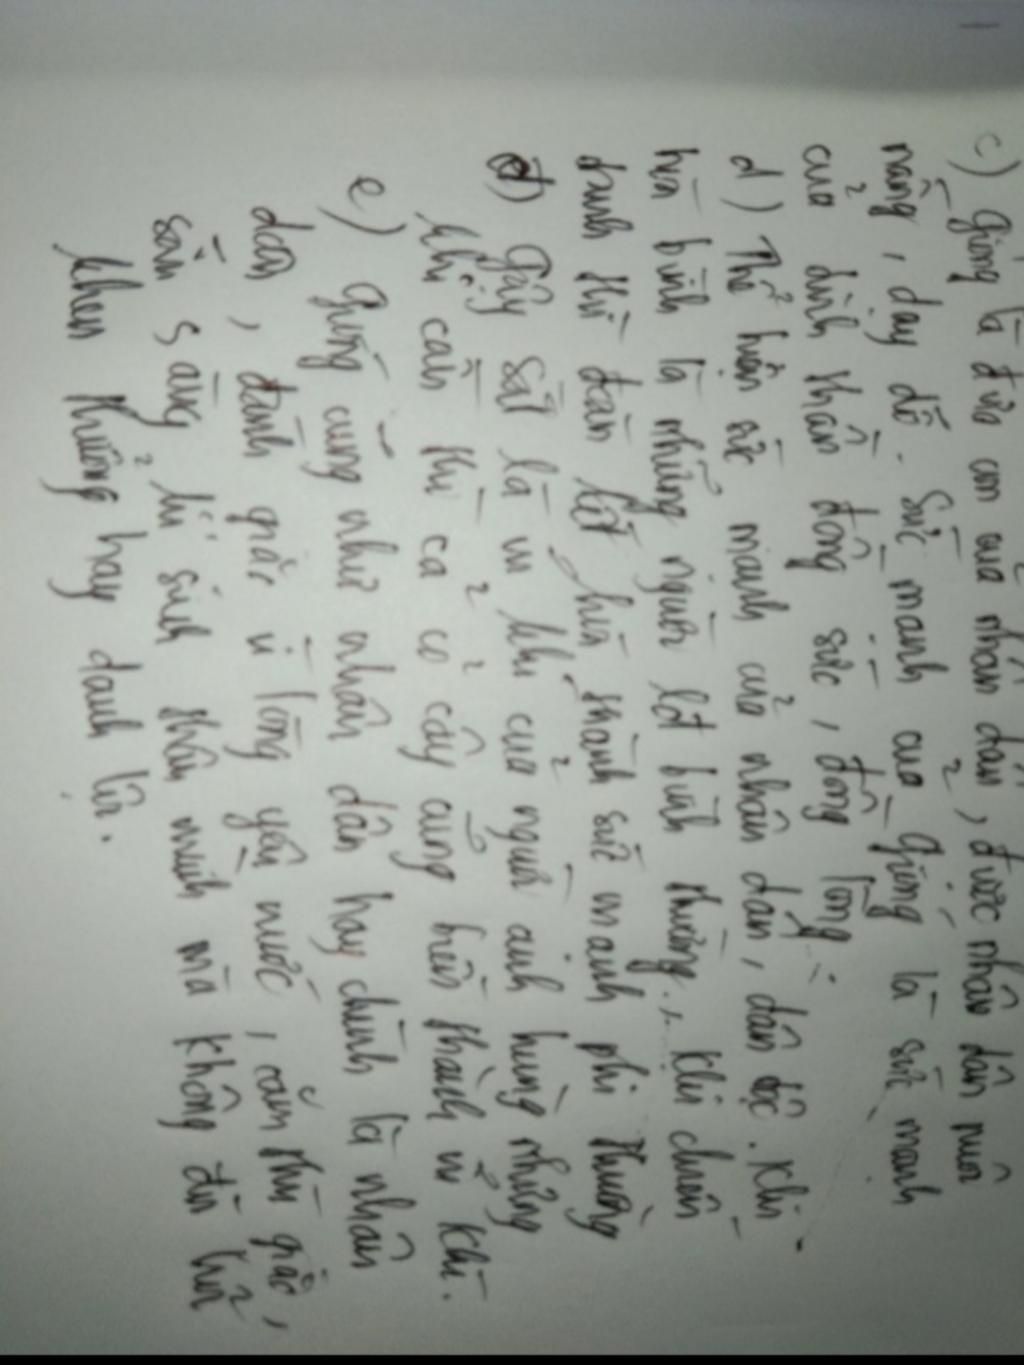 c) Gióng là đứa con của nhân dân, được nhân dân nuôi
nấng, dạy dỗ. Sức mạnh của Gióng là sức mạnh
của tinh thần đồng sức, đồng lòng.
d) Thể hiện sức mạnh của nhân dân, dân tộc. Khi
hòa bình là những người lđ bình thường, khi chiến
tranh thì đoàn kết hóa thành sức mạnh phi thường
đ) Gậy sắt là vũ khí của người anh hùng nhưng
khi cần thì cả cỏ cây cũng biến thành vũ khí.
e) Gióng cũng như nhân dân hay chính là nhân
dân, đánh giặc vì lòng yêu nước, căm thù giặc,
sẵn sàng hi sinh thân mình mà không đòi hỏi
khen thưởng hay danh lợi.